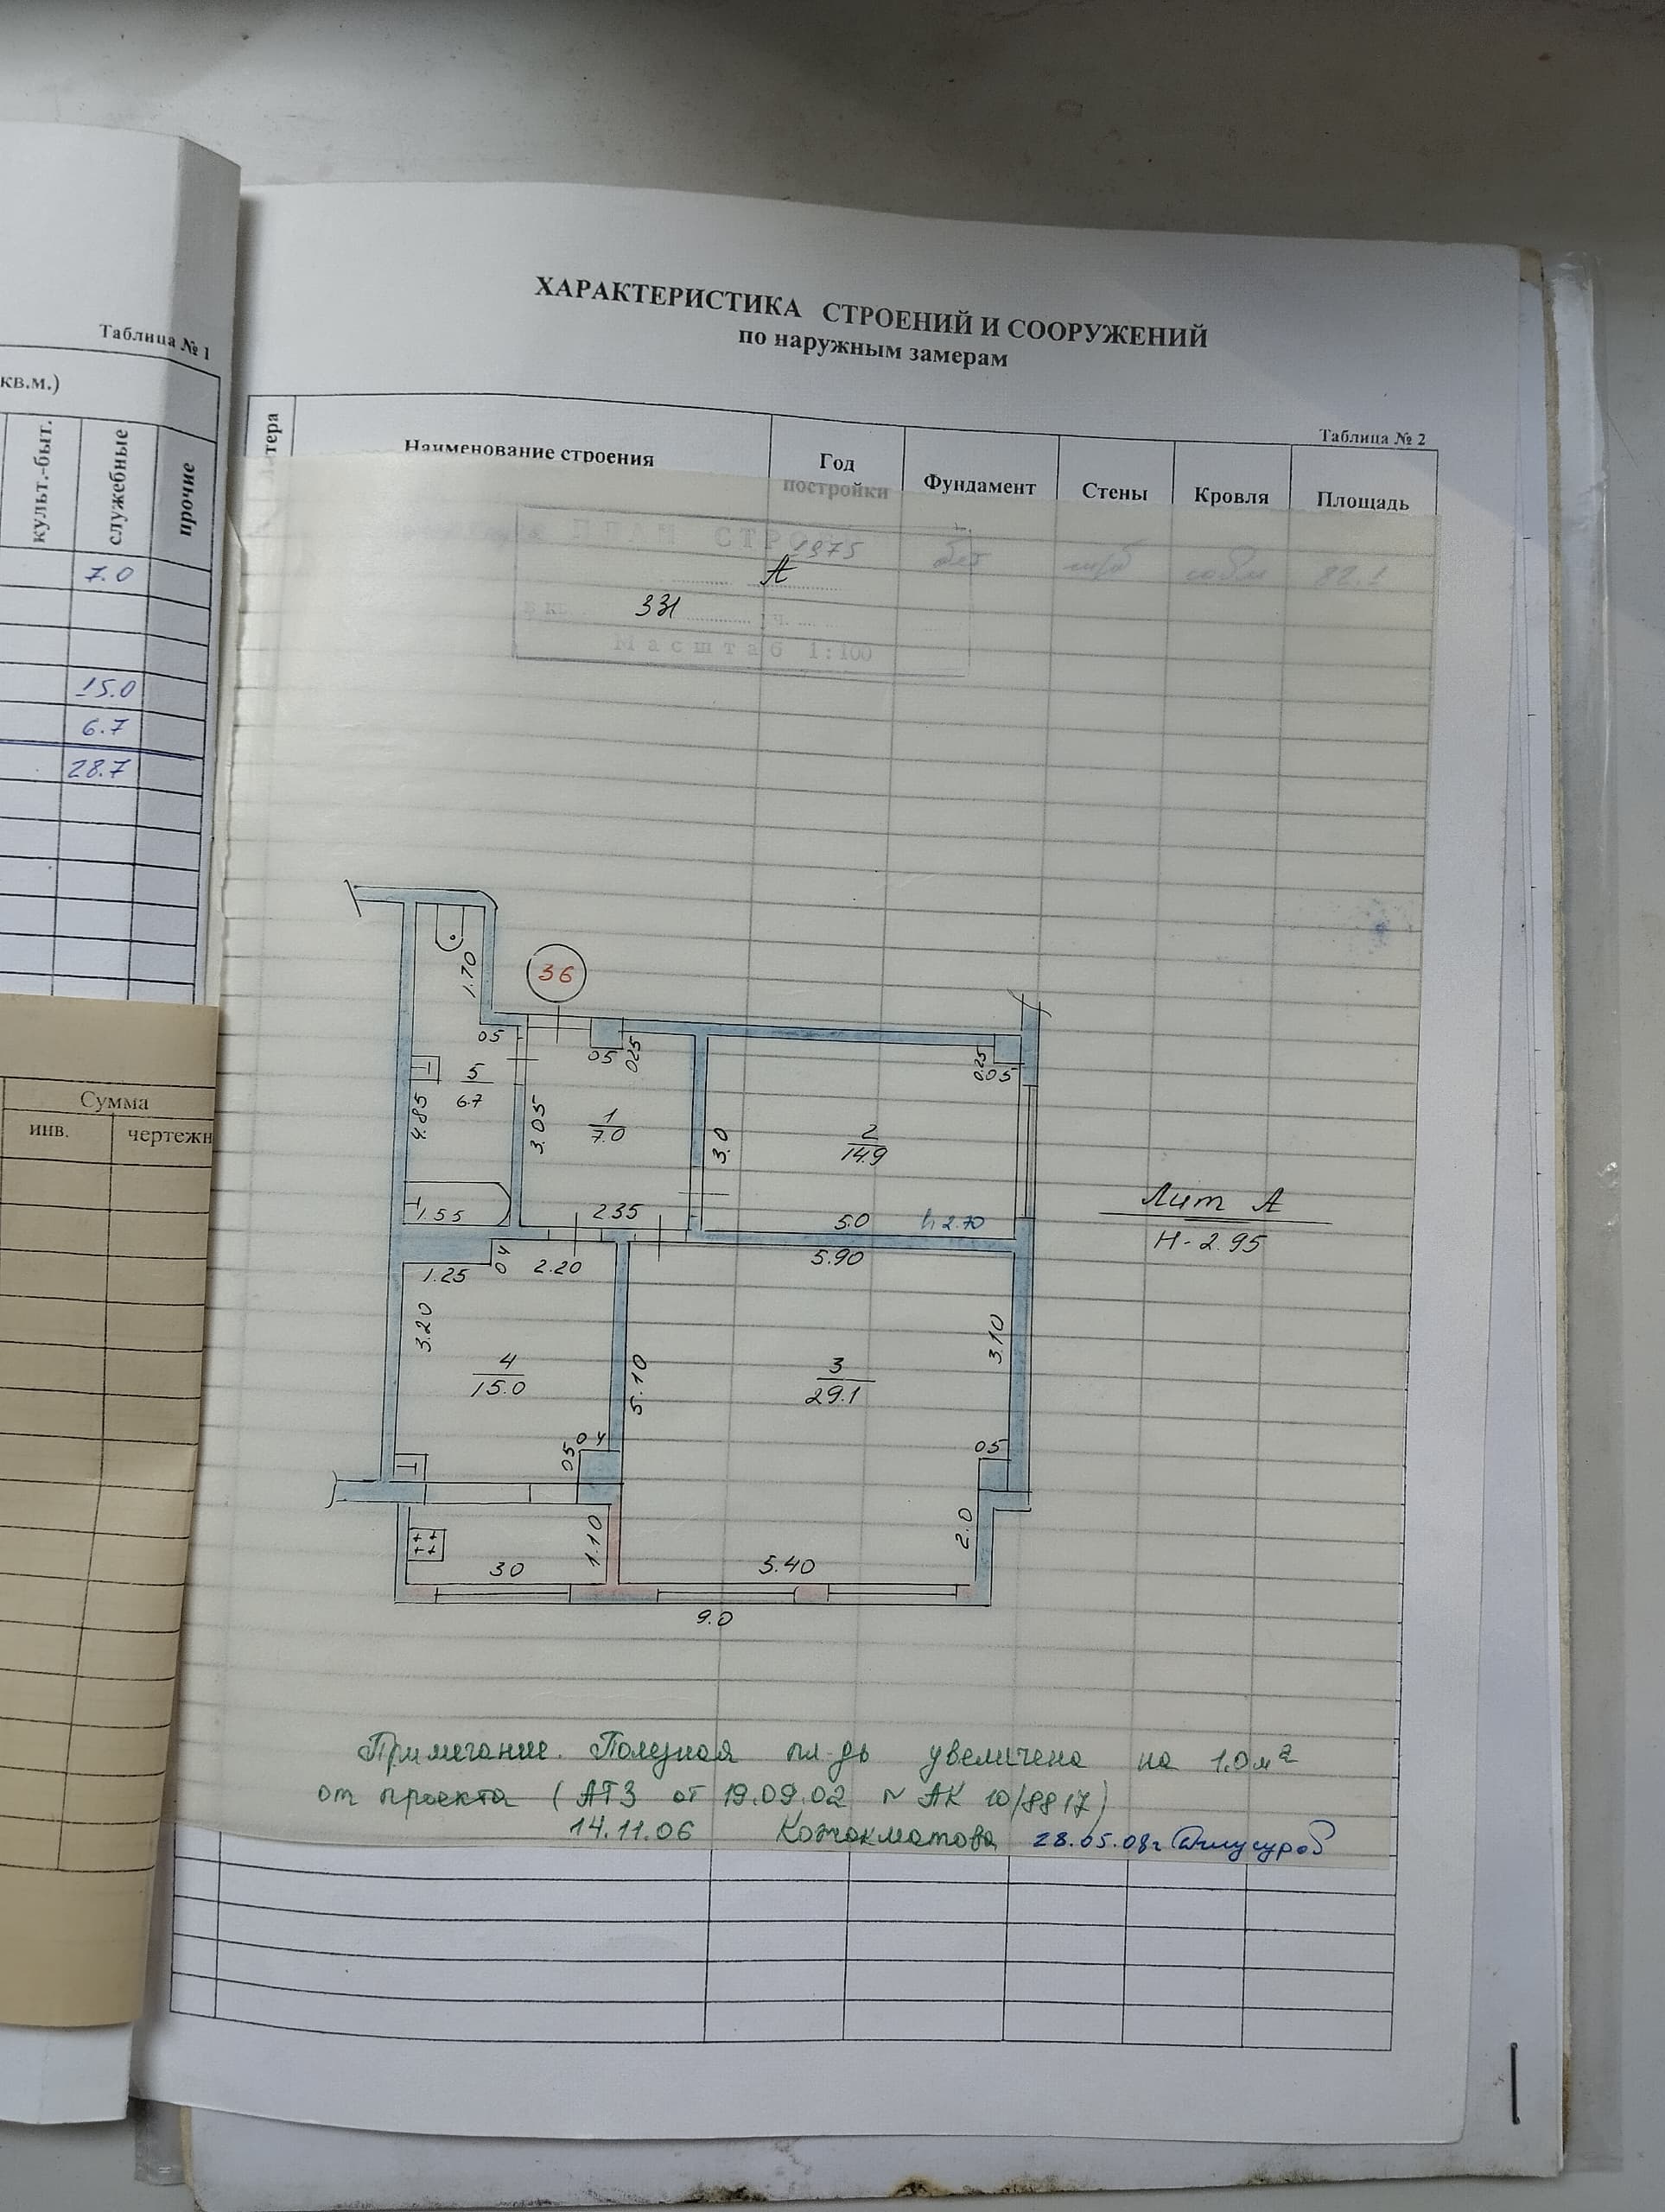 Таблица № 1
кв.м.)
культ.-быт.
служебные
прочие
7.0
15.0
6.7
28.7
Сумма
инв.
чертежн
ХАРАКТЕРИСТИКА СТРОЕНИЙ И СООРУЖЕНИЙ
по наружным замерам
Таблица № 2
тера
Наименование строения
Год
постройки
Фундамент
Стены
Кровля
Площадь
ПЛАН СТРО
1975
82.1
А
331
Масштаб 1:100
1.70
36
05
05
0.25
0.25
0.05
5
6.7
4.85
3.05
1
7.0
3.0
2
14.9
1.55
2.35
5.0
h 2.70
Лит А
Н-2.95
1.25
04
2.20
5.90
3.20
3.10
4
15.0
5.10
3
29.1
05
04
05
1.10
2.0
30
5.40
9.0
Примечание. Полезная пл-дь увеличена на 1.0 м²
от проекта (АТЗ от 19.09.02 N АК 10/8817)
14.11.06 Кожокматова 28.05.08г